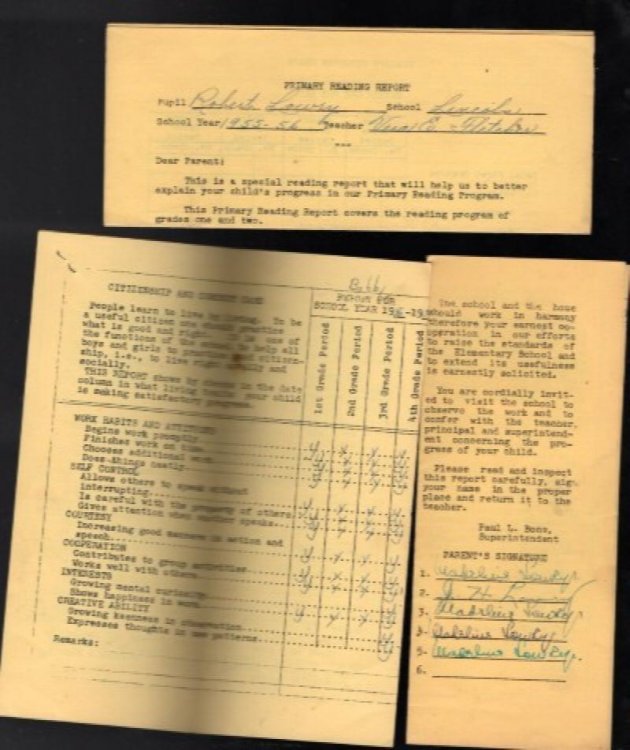 PRIMARY READING REPORT
Pupil Robert Lowry School Lincoln
School Year 1955-56 Teacher E. Fletcher
Dear Parent:
This is a special reading report that will help us to better
explain your child's progress in our Primary Reading Program.
This Primary Reading Report covers the reading program of
grades one and two.
CITIZENSHIP AND CONDUCT CARD
People learn to live by To be
a useful citizen one practice
what is good and right. is one of
the functions of the help all
boys and girls to citizen-
ship, i.e., to live and
socially.
THIS REPORT shows by in the date
column in what living your child
is making satisfactory
Bobby
REPORT FOR
SCHOOL YEAR 19
1st Grade Period
2nd Grade Period
3rd Grade Period
4th Grade Period
WORK HABITS AND
Begins work promptly
Finishes work on time
Chooses additional work
Does things neatly
SELF CONTROL
Allows others to speak without
interrupting
Is careful with the property of others
Gives attention when another speaks
COURTESY
Increasing good manners in action and
speech
COOPERATION
Contributes to group activities
Works well with others
INTERESTS
Growing mental curiosity
Shows happiness in work
CREATIVE ABILITY
Growing keenness in observation
Expresses thoughts in new patterns
Remarks:
The school and the home
should work in harmony
therefore your earnest co-
operation in our efforts
to raise the standards of
the Elementary School and
to extend its usefulness
is earnestly solicited.
You are cordially invit-
ed to visit the school to
observe the work and to
confer with the teacher,
principal and superintend-
ent concerning the pro-
gress of your child.
Please read and inspect
this report carefully, sign
your name in the proper
place and return it to the
teacher.
Paul L. Bone,
Superintendent
PARENT'S SIGNATURE
1. Madeline Lowry
2.
3. Madeline Lowry
3. Madeline Lowry
5. Madeline Lowry
6.